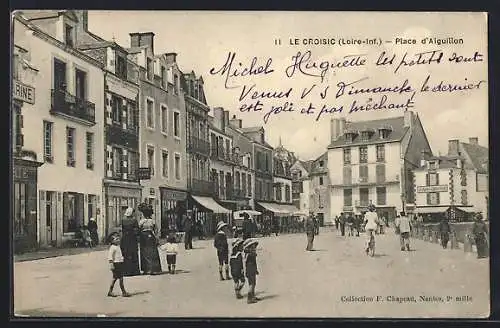 11 LE CROISIC (Loire-Inf.) — Place d'Aiguillon
Michel Huguette les petits sont
Venus V S Dimanche, le dernier
est joli et pas méchant
RINE
Collection F. Chapeau, Nantes, 2e mille